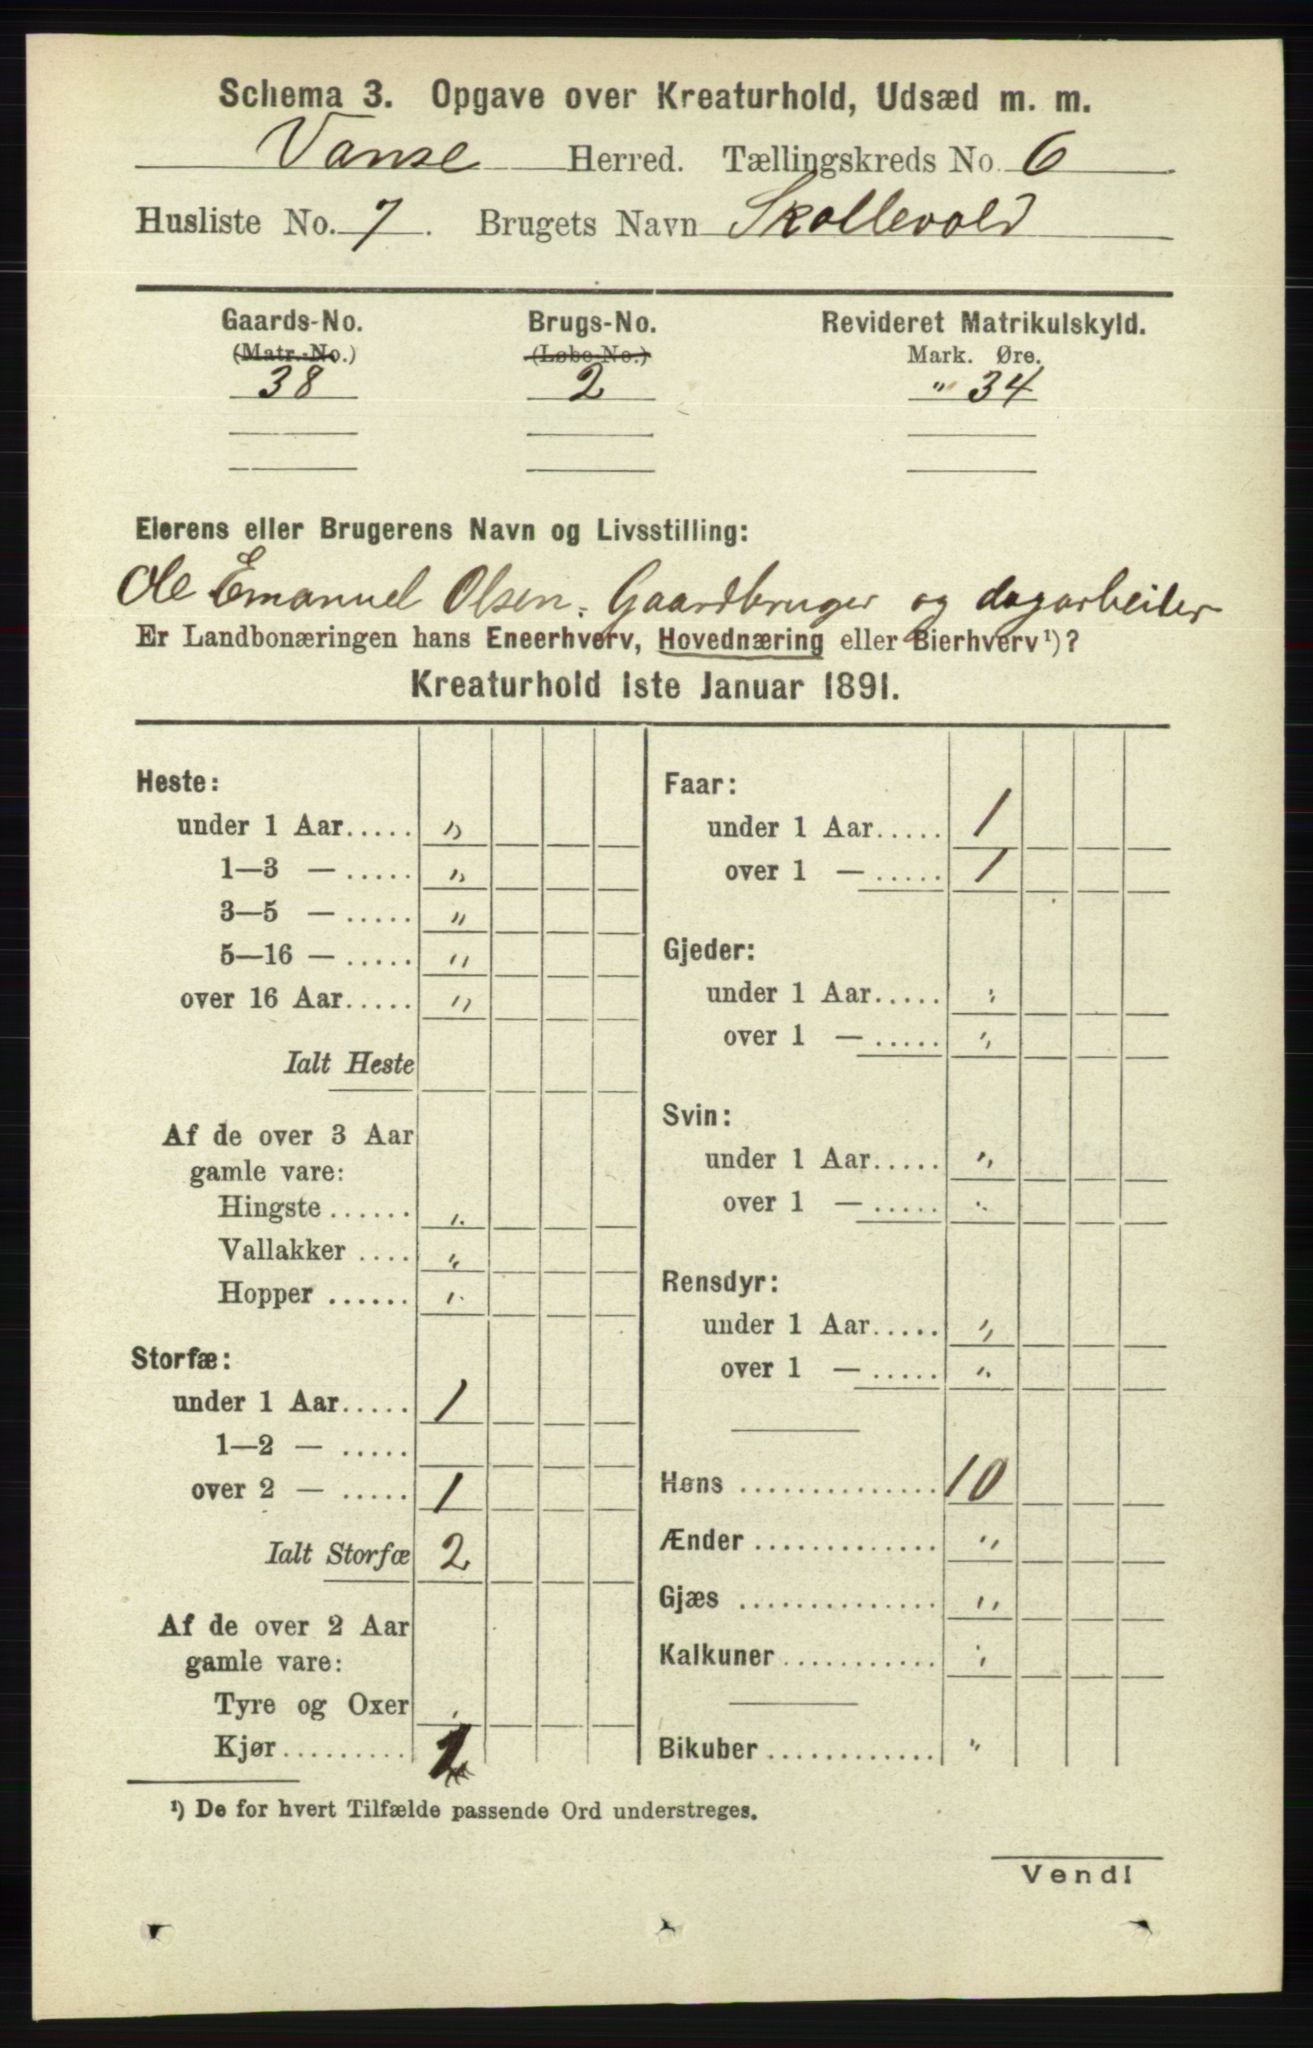 Schema 3. Opgave over Kreaturhold, Udsæd m. m.
Vanse Herred. Tællingskreds No. 6
Husliste No. 7. Brugets Navn Skollevold
Gaards-No. Brugs-No. Revideret Matrikulskyld.
(Matr.-No.) (Løbe-No.) Mark. Øre.
38 2 " 34
Eierens eller Brugerens Navn og Livsstilling:
Ole Emanuel Olsen. Gaardbruger og dagarbeider
Er Landbonæringen hans Eneerhverv, Hovednæring eller Bierhverv¹)?
Kreaturhold 1ste Januar 1891.
Heste:
under 1 Aar..... "
1—3 — ..... "
3—5 — ..... "
5—16 — ..... "
over 16 Aar..... "
Ialt Heste
Af de over 3 Aar
gamle vare:
Hingste ...... "
Vallakker .... "
Hopper ...... "
Storfæ:
under 1 Aar..... 1
1—2 — .....
over 2 — ..... 1
Ialt Storfæ 2
Af de over 2 Aar
gamle vare:
Tyre og Oxer "
Kjør......... 1
Faar:
under 1 Aar..... 1
over 1 — ..... 1
Gjeder:
under 1 Aar..... "
over 1 — ..... "
Svin:
under 1 Aar..... "
over 1 — ..... "
Rensdyr:
under 1 Aar..... "
over 1 — ..... "
Høns .............. 10
Ænder ............. "
Gjæs .............. "
Kalkuner ........... "
Bikuber ............ "
¹) De for hvert Tilfælde passende Ord understreges.
Vend!